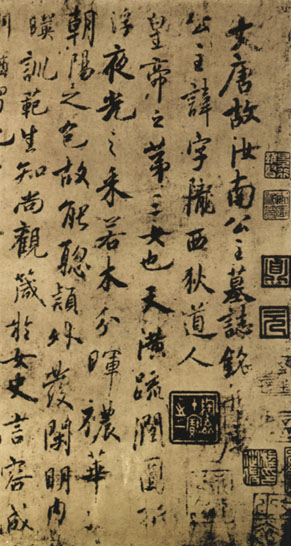 大唐故汝南公主墓誌銘并序
公主諱字隴西狄道人
皇帝之第三女也天潢疏潤圓折
浮夜光之采若木分暉穠華
朝陽之色故能聰穎外發閑明內
暎訓範生知尚觀箴於女史言容成